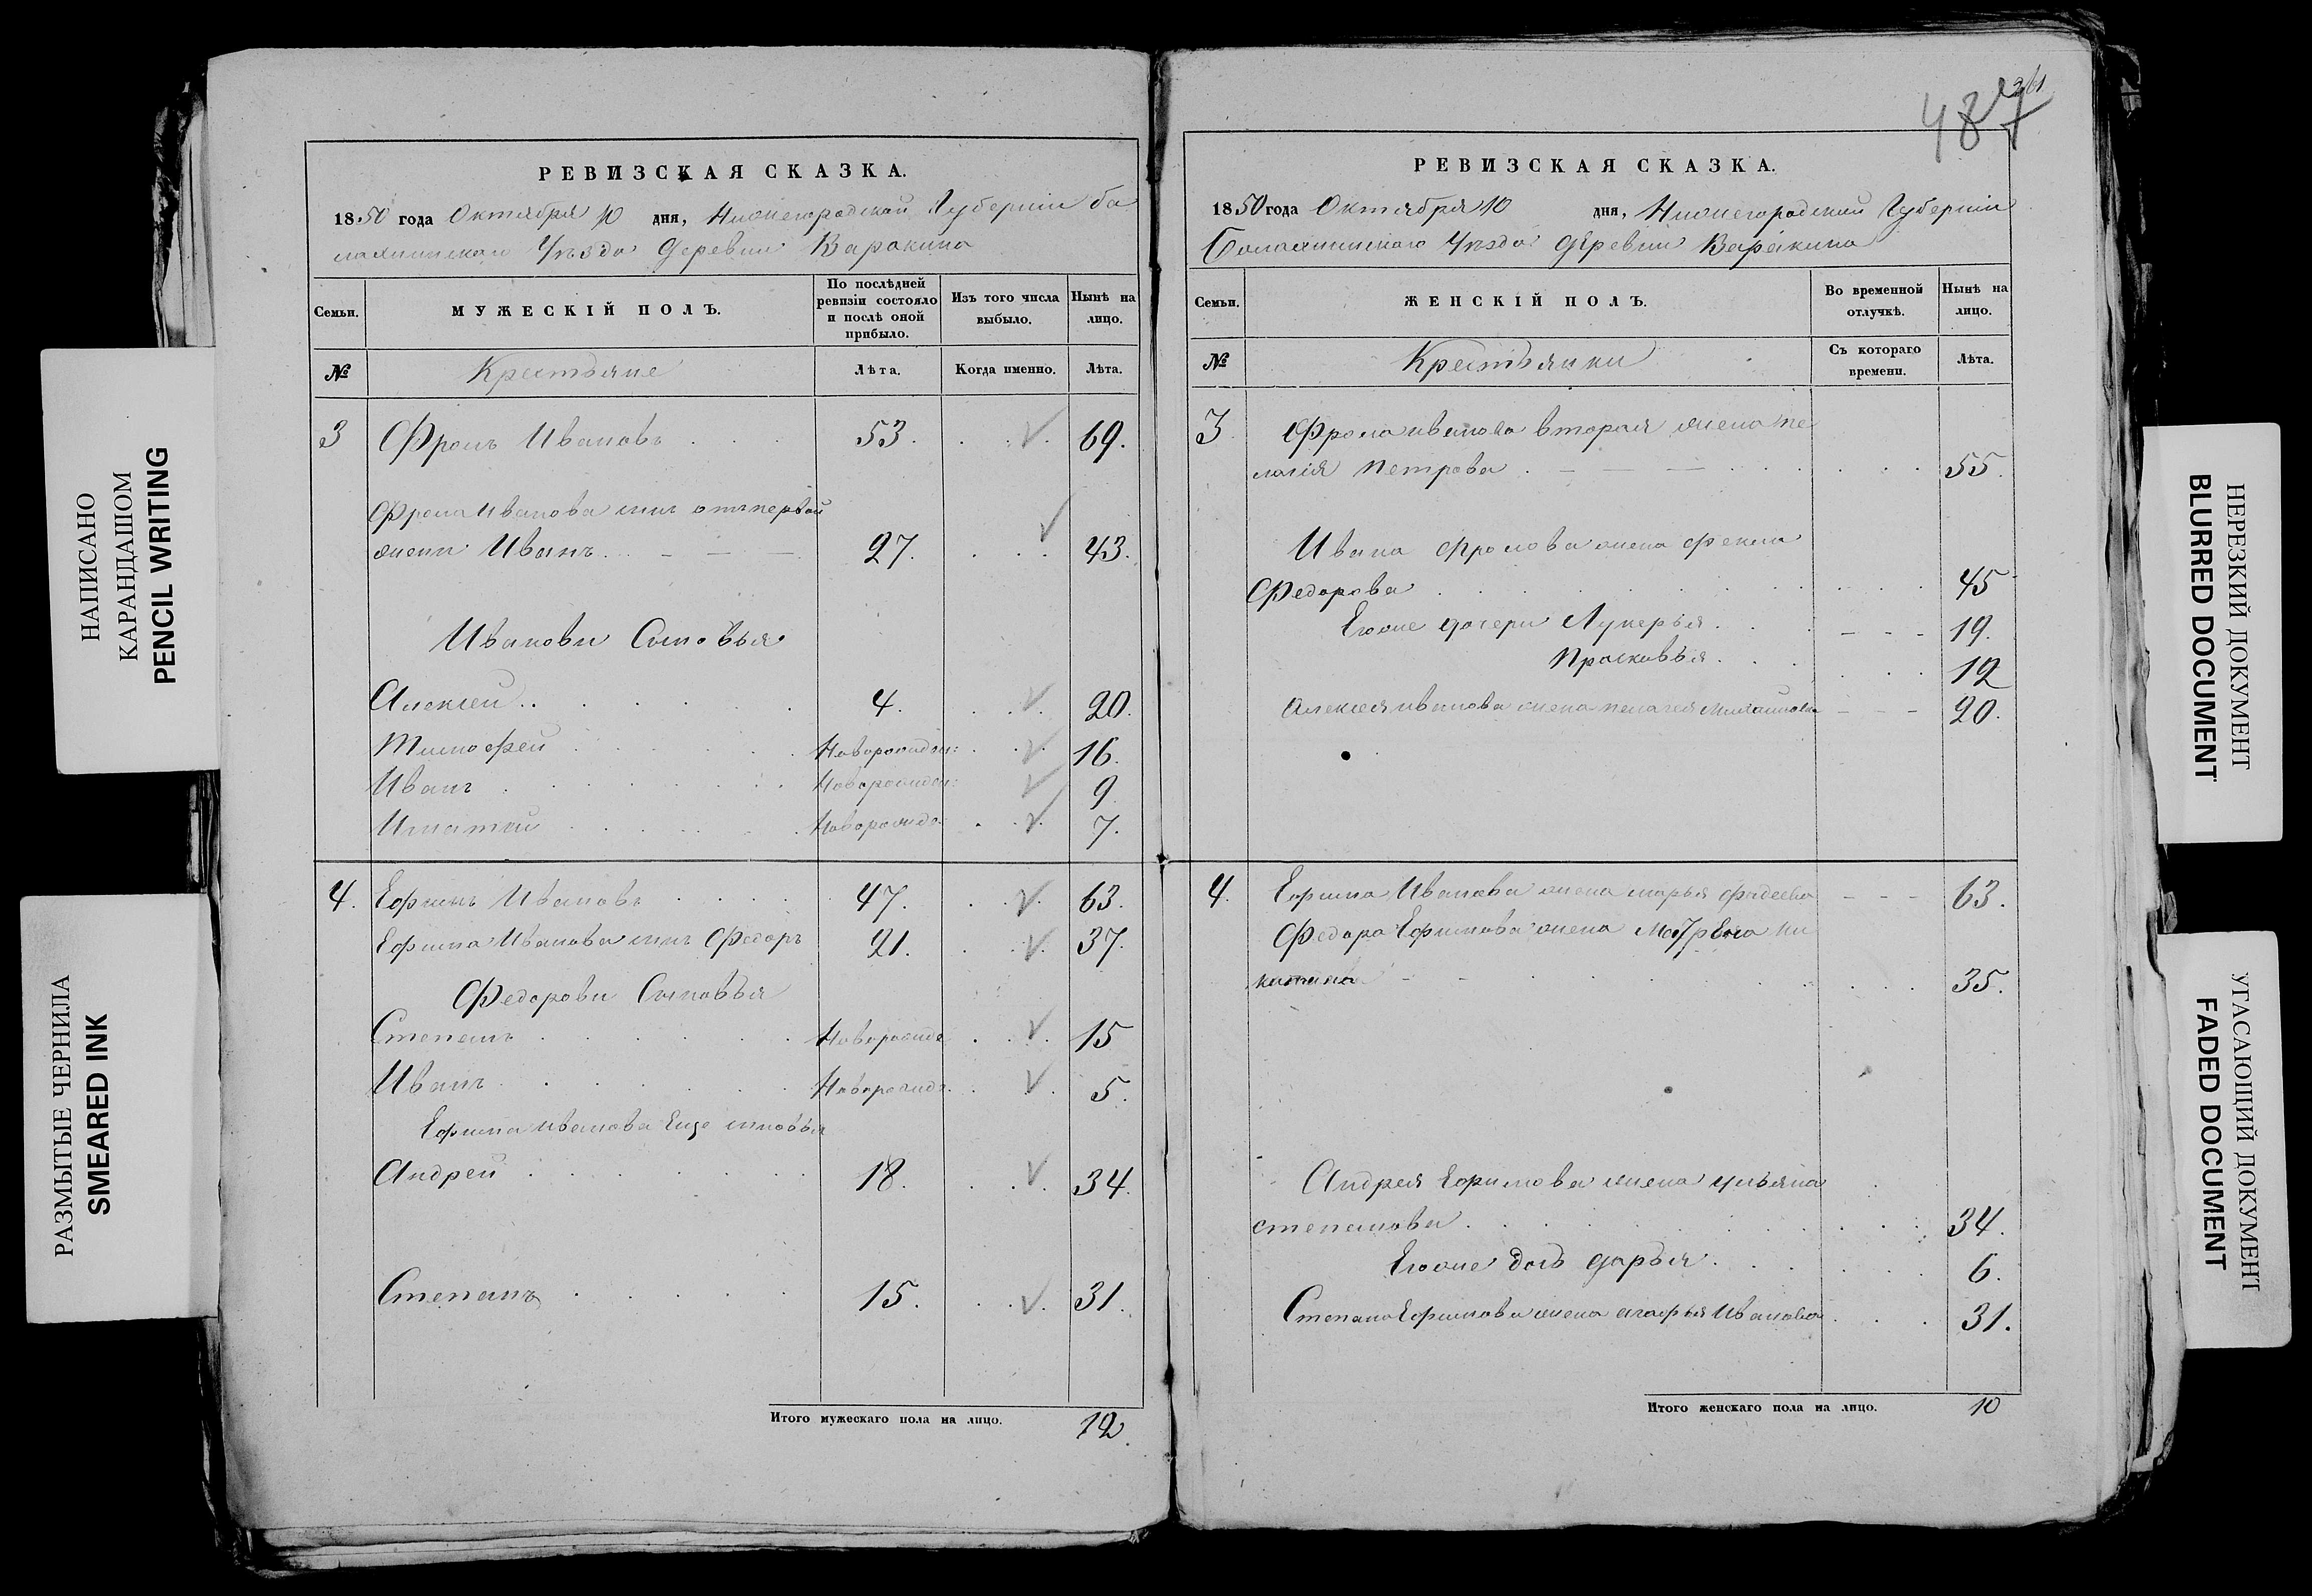 НАПИСАНО
КАРАНДАШОМ
PENCIL WRITING
РАЗМЫТЫЕ ЧЕРНИЛА
SMEARED INK
РЕВИЗСКАЯ СКАЗКА.
1850 года Октября 10 дня, Нижегородской Губернии Ба
лахнинскаго Уѣзда Деревни Варакина
Семьи. МУЖЕСКІЙ ПОЛЪ. По послѣдней ревизіи состояло и послѣ оной прибыло. Изъ того числа выбыло. Нынѣ на лицо.
№ Крестьяне Лѣта. Когда именно. Лѣта.
3 Фролъ Ивановъ 53. 69.
Фрола Иванова сынъ отъ первой
жены Иванъ 27. 43.
Ивановы Сыновья
Алексей 4. 20.
Тимофей Новорожден: 16.
Иванъ Новорожден: 9
Игнатей Новорожде 7.
4. Ефимъ Ивановъ 47. 63.
Ефима Иванова сынъ Федоръ 21. 37.
Федоровы Сыновья
Степанъ Новорожде 15
Иванъ Новорожде. 5.
Ефима Иванова Еще сыновья
Андрей 18. 34.
Степанъ 15. 31.
Итого мужескаго пола на лицо. 12.
487
261
РЕВИЗСКАЯ СКАЗКА.
1850 года Октября 10 дня, Нижегородской Губернии
Балахнинскаго Уѣзда Деревни Варакина
Семьи. ЖЕНСКІЙ ПОЛЪ. Во временной отлучкѣ. Нынѣ на лицо.
№ Крестьянки Съ котораго времени. Лѣта.
3 Фрола иванова вторая жена пе
лагія Петрова 55.
Ивана Фролова жена Фекла
Федорова 45
Егоже дочери Лукерья 19.
Прасковья 12
Алексея иванова жена пелагея Михайлова 20.
4. Ефима Иванова жена марья фадеева 63.
Федора Ефимова жена Матрена Ни
китина 35.
Андрея Ефимова жена ульяна
степанова 34.
Егоже дочь дарья 6.
Степана Ефимова жена агафья Иванова 31.
Итого женскаго пола на лицо. 10
НЕРЕЗКИЙ ДОКУМЕНТ
BLURRED DOCUMENT
УГАСАЮЩИЙ ДОКУМЕНТ
FADED DOCUMENT